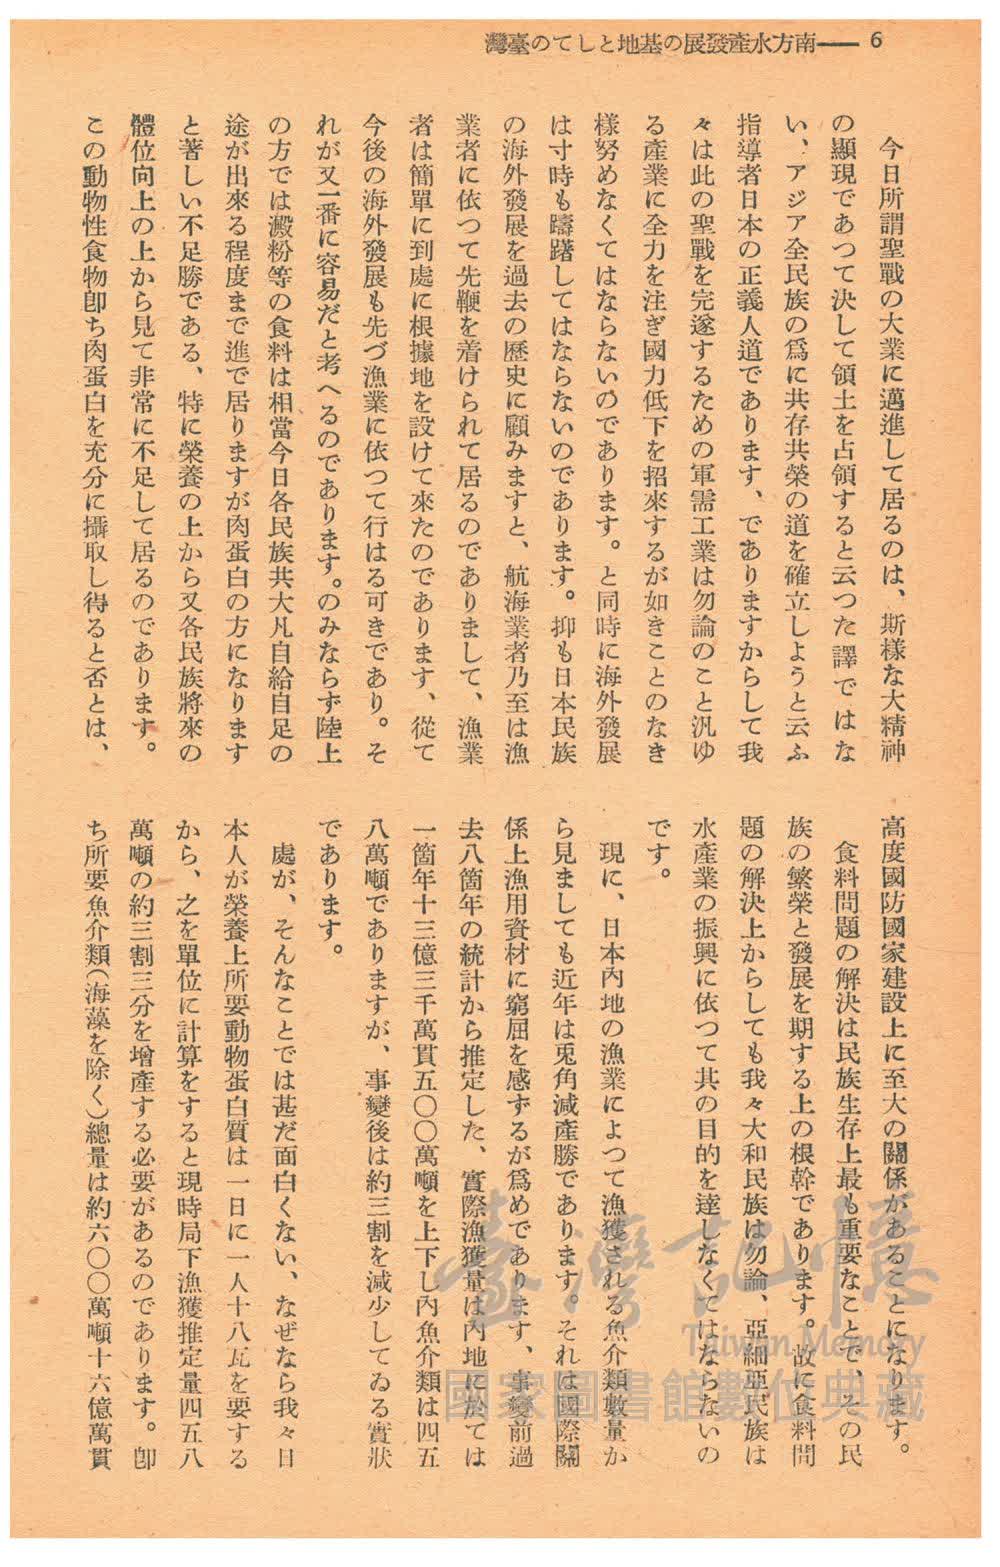 南方水產發展の基地としての臺灣 ― 6
今日所謂聖戰の大業に邁進して居るのは、斯樣な大精神
の顯現であつて決して領土を占領すると云つた譯ではな
い、アジア全民族の爲に共存共榮の道を確立しようと云ふ
指導者日本の正義人道であります、でありますからして我
々は此の聖戰を完遂するための軍需工業は勿論のこと汎ゆ
る產業に全力を注ぎ國力低下を招來するが如きことのなき
樣努めなくてはならないのであります。と同時に海外發展
は寸時も躊躇してはならないのであります。抑も日本民族
の海外發展を過去の歷史に顧みますと、航海業者乃至は漁
業者に依つて先鞭を着けられて居るのでありまして、漁業
者は簡單に到處に根據地を設けて來たのであります、從て
今後の海外發展も先づ漁業に依つて行はる可きであり。そ
れが又一番に容易だと考へるのであります。のみならず陸上
の方では澱粉等の食料は相當今日各民族共大凡自給自足の
途が出來る程度まで進で居りますが肉蛋白の方になります
と著しい不足勝である、特に榮養の上から又各民族將來の
體位向上の上から見て非常に不足して居るのであります。
この動物性食物卽ち肉蛋白を充分に攝取し得ると否とは、
高度國防國家建設上に至大の關係があることになります。
食料問題の解決は民族生存上最も重要なことで、その民
族の繁榮と發展を期する上の根幹であります。故に食料問
題の解決上からしても我々大和民族は勿論、亞細亞民族は
水產業の振興に依つて其の目的を達しなくてはならないの
です。
現に、日本內地の漁業によつて漁獲される魚介類數量か
ら見ましても近年は兎角減產勝であります。それは國際關
係上漁用資材に窮屈を感ずるが爲めであります、事變前過
去八箇年の統計から推定した、實際漁獲量は內地に於ては
一箇年十三億三千萬貫五〇〇萬噸を上下し內魚介類は四五
八萬噸でありますが、事變後は約三割を減少してゐる實狀
であります。
處が、そんなことでは甚だ面白くない、なぜなら我々日
本人が榮養上所要動物蛋白質は一日に一人十八瓦を要する
から、之を單位に計算をすると現時局下漁獲推定量四五八
萬噸の約三割三分を增產する必要があるのであります。卽
ち所要魚介類(海藻を除く)總量は約六〇〇萬噸十六億萬貫
臺灣記憶
Taiwan Memory
國家圖書館數位典藏